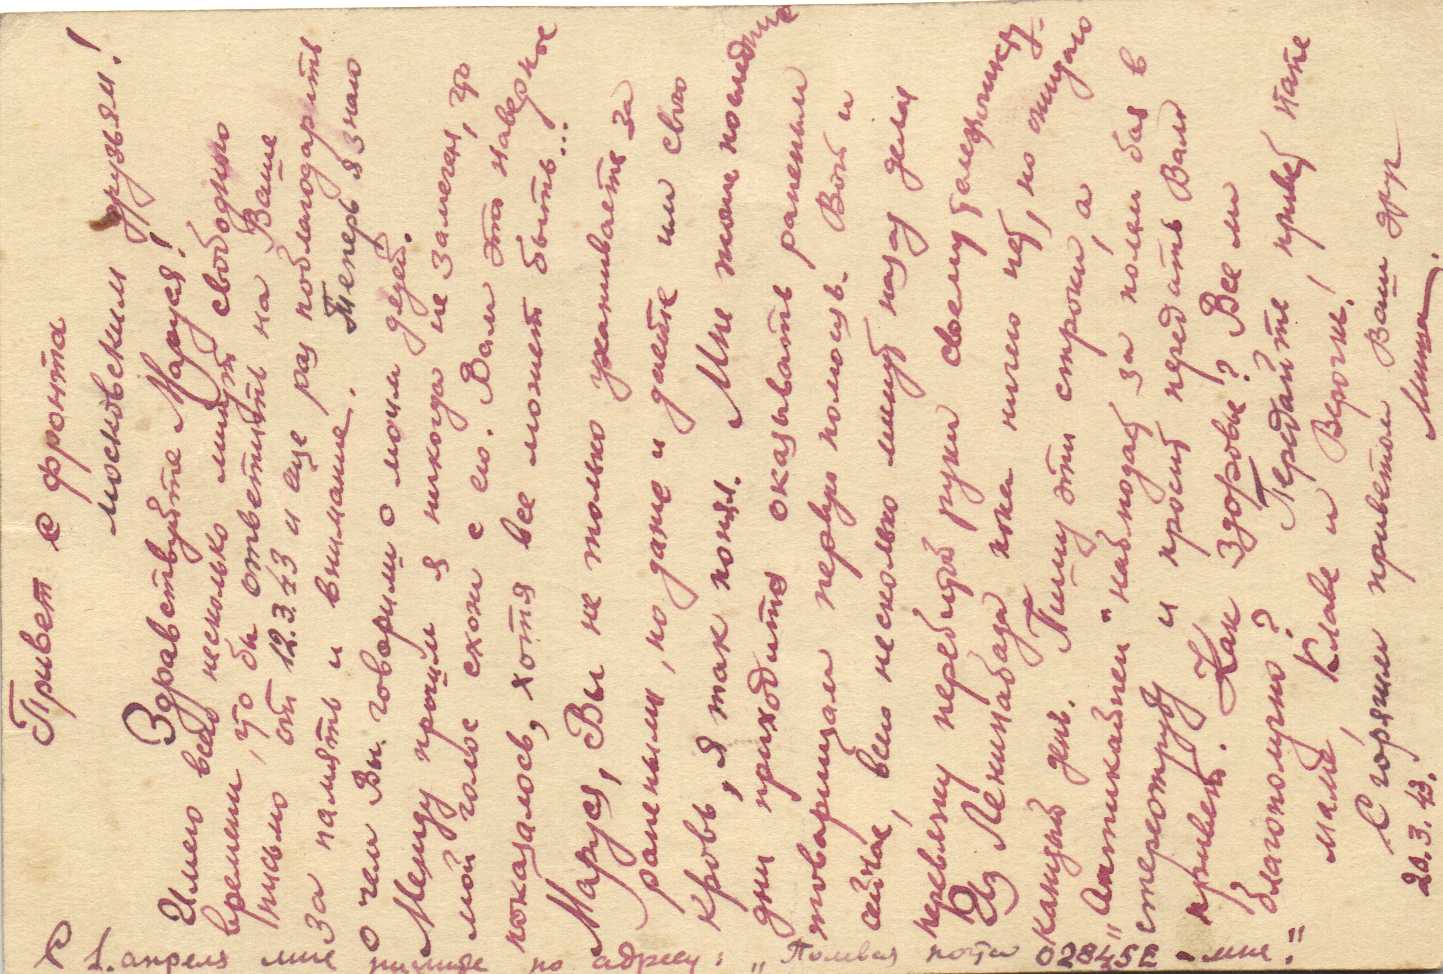 Привет с фронта
московским друзьям!
Здравствуйте Маруся!
Имею всего несколько минут свободного
времени, что бы ответить на Ваше
письмо от 12.3.43 и еще раз поблагодарить
за память и внимание. Теперь я знаю
о чем Вы говорили о моим
Между прочим я никогда не замечал, что
мой голос схож с его. Вам это наверное
показалось, хотя все может быть...
Маруся, Вы не только ухаживаете за
ранеными, но даже и даете им свою
кровь, я так понял. Мне тоже последние
дни приходится оказывать раненым
товарищам первую помощь. Вот и
сейчас, всего несколько минут назад делал
перевязку перебитой руки своему
Из Ленинабада пока ничего нет, но ожидаю
каждый день. Пишу эти строки, а
"наблюдает за полем боя в
стереотрубу и просит передать Вам
привет. Как здоровье? Все ли
благополучно? Передайте привет папе
маме, Клаве и Верочке!
С горячим приветом Ваш друг
20.3.43. Миша.
С 1. апреля мне пишите по адресу: „Полевая почта 02845Е - мне."